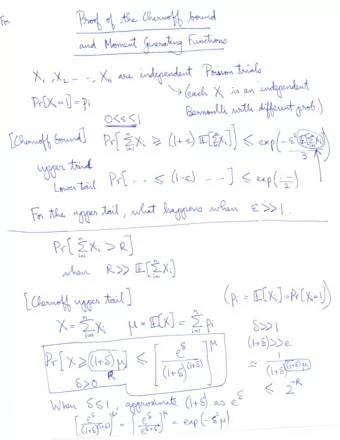 For
Proof of the Chernoff bound
and Moment Generating Functions
X₁, X₂ - - -, Xₙ are independent Poisson trials
Pr[Xᵢ=1] = pᵢ
↘ (each Xᵢ is an independent
Bernoulli with different prob.)
0<ε≤1
[Chernoff bound] Pr[∑ᵢ₌₁ⁿ Xᵢ ≥ (1+ε) E[∑Xᵢ]] ≤ exp(-ε² E[∑Xᵢ] / 3)
upper tail
Lower tail Pr[ - - ≤ (1-ε) - - ] ≤ exp(- / 2)
For the upper tail, what happens when ε>>1.
Pr[∑ᵢ₌₁ⁿ Xᵢ > R]
when R >> E[∑ᵢ₌₁ⁿ Xᵢ]
[Chernoff upper tail] (pᵢ = E[Xᵢ] = Pr[Xᵢ=1])
X = ∑ᵢ₌₁ⁿ Xᵢ μ = E[X] = ∑ᵢ₌₁ⁿ pᵢ δ>>1
(1+δ)>>e
Pr[X ≥ (1+δ)μ] ≤ [e^δ / (1+δ)^(1+δ)]^μ ≈ 1 / (1+δ)^((1+δ)μ)
δ>0 R ≤ 2^(-R)
When δ≤1, approximate (1+δ) as e^δ
[e^δ / (1+δ)^(1+δ)]^μ ≈ [e^δ / e^(δ+δ²)]^μ = exp(-δ²μ)